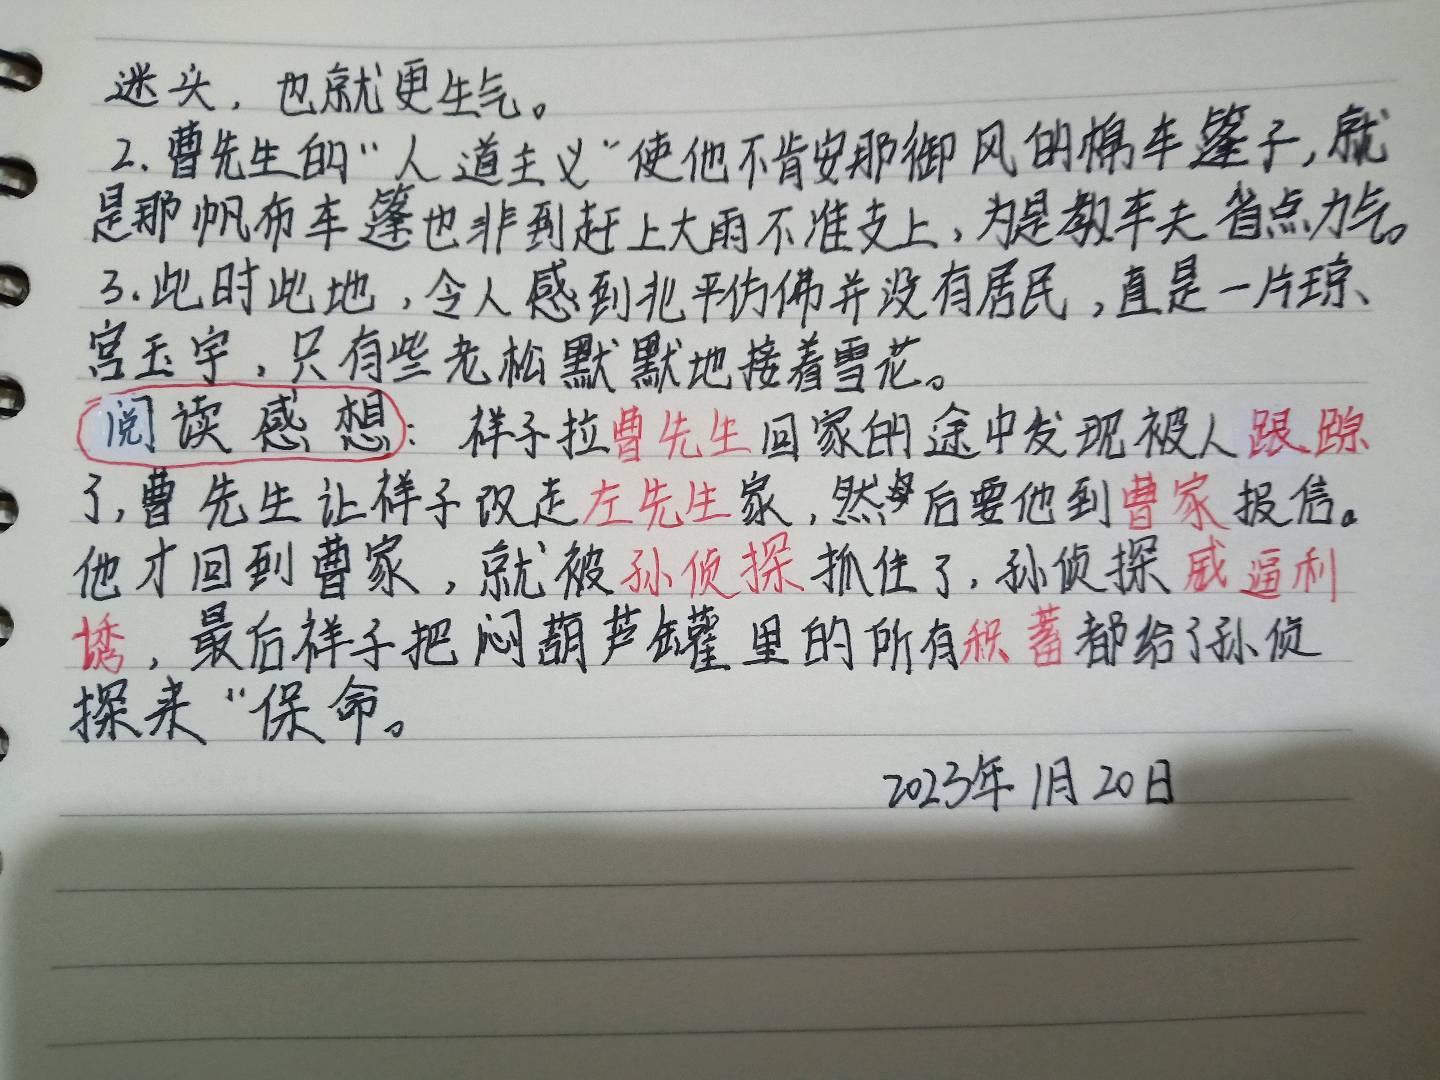 迷头，也就更生气。
2.曹先生的“人道主义”使他不肯安那御风的棉车篷子，就
是那帆布车篷也非到赶上大雨不准支上，为是教车夫省点力气。
3.此时此地，令人感到北平仿佛并没有居民，直是一片琼
宫玉宇，只有些老松默默地接着雪花。
阅读感想：祥子拉曹先生回家的途中发现被人跟踪
了，曹先生让祥子改走左先生家，然后要他到曹家报信。
他才回到曹家，就被孙侦探抓住了，孙侦探威逼利
诱，最后祥子把闷葫芦罐里的所有积蓄都给了孙侦
探来“保命。
2023年1月20日